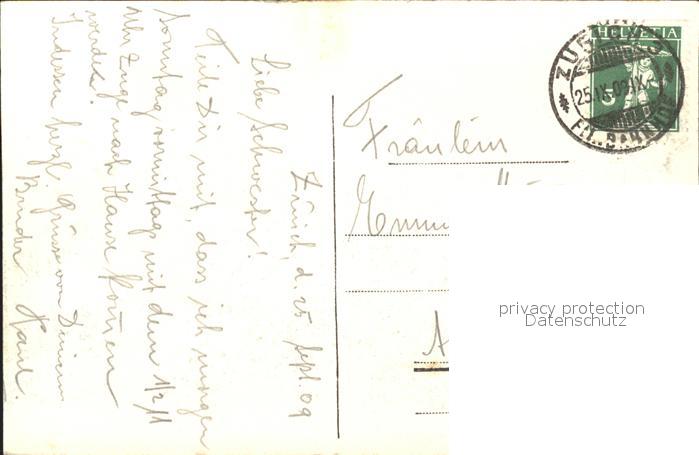 Zürich, d. 25. Sept. 09
Liebe Schwester!
Teile Dir mit, dass ich morgen
Sonntag vormittag mit dem 1/2 11
Uhr Zuge nach Hause kommen
werde!
Indessen herzl. Grüsse von Deinem
Bruder Hans.
Fräulein
Emm
A
HELVETIA
25.IX.09
privacy protection
Datenschutz